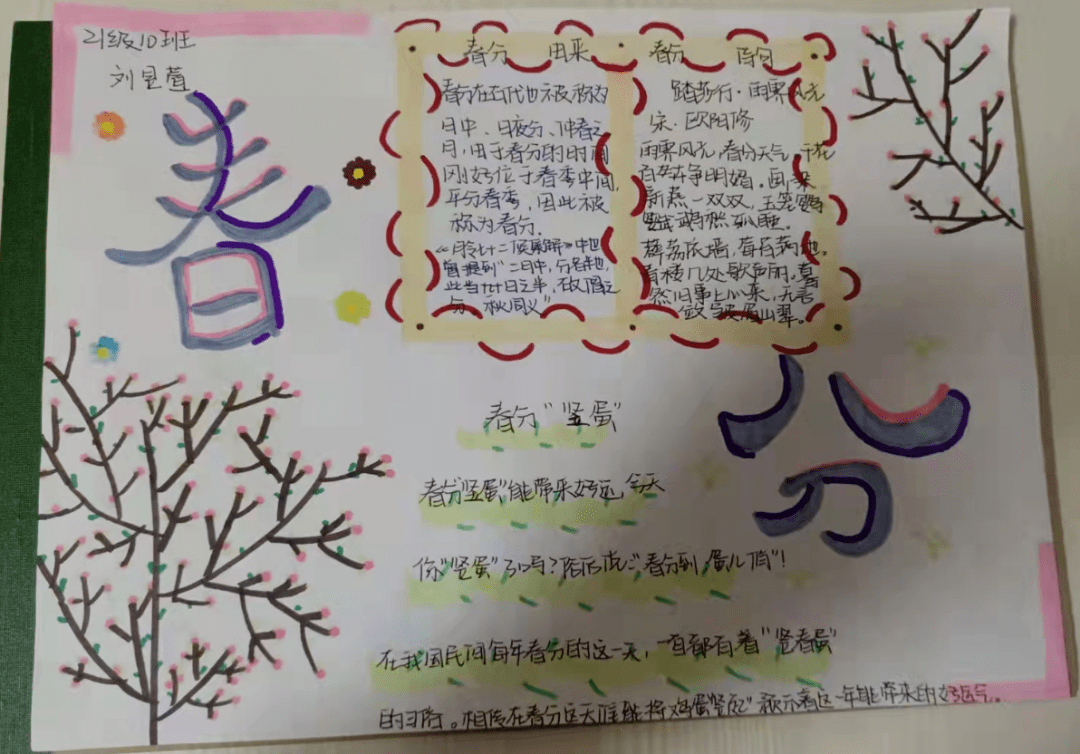 21级10班
刘昱萱
春
春分 由来
春分在古代也被称为
日中、日夜分、仲春之
月,由于春分的时间
刚好位于春季中间,
平分春季,因此被
称为春分.
《月令七十二候集解》中也
曾提到"二月中,分者半也,
此当九十日之半,故谓之
分。秋同义"
春分 诗词
踏莎行·雨霁风光
宋·欧阳修
雨霁风光,春分天气,千花
百卉争明媚。画梁
新燕一双双,玉笼鹦鹉
愁孤睡。
薜荔依墙,莓苔满地。
青楼几处歌声丽。蓦
然旧事上心来,无言
敛皱眉山翠。
分
春分"竖蛋"
春分"竖蛋"能带来好运,今天
你"竖蛋"了吗?俗话说:"春分到,蛋儿俏"!
在我国民间每年春分的这一天,一直都有着"竖春蛋"
的习俗。相传在春分这天谁能将鸡蛋"竖起"预示着这一年能带来的好运气。